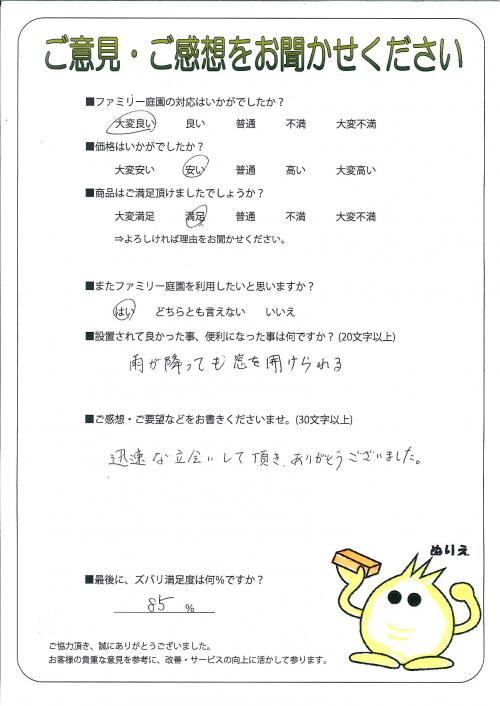 ご意見・ご感想をお聞かせください
■ファミリー庭園の対応はいかがでしたか？
大変良い 良い 普通 不満 大変不満
■価格はいかがでしたか？
大変安い 安い 普通 高い 大変高い
■商品はご満足頂けましたでしょうか？
大変満足 満足 普通 不満 大変不満
⇒よろしければ理由をお聞かせください。
■またファミリー庭園を利用したいと思いますか？
はい どちらとも言えない いいえ
■設置されて良かった事、便利になった事は何ですか？(20文字以上)
雨が降っても窓を開けられる
■ご感想・ご要望などをお書きくださいませ。(30文字以上)
迅速な立会いして頂き、ありがとうございました。
ぬりえ
■最後に、ズバリ満足度は何%ですか？
85 %
ご協力頂き、誠にありがとうございました。
お客様の貴重な意見を参考に、改善・サービスの向上に活かして参ります。